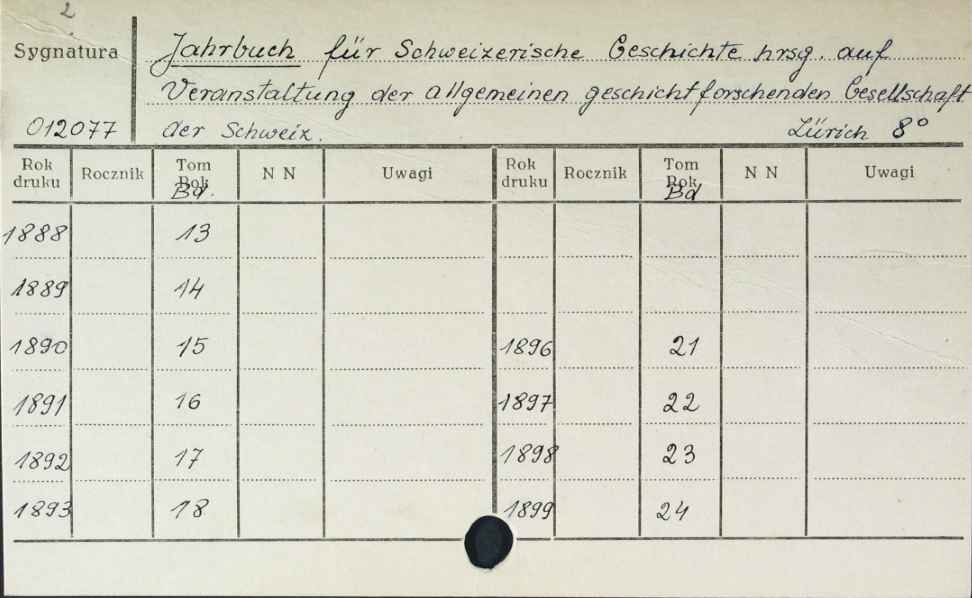 2
Sygnatura
Jahrbuch für Schweizerische Geschichte hrsg. auf
Veranstaltung der allgemeinen geschichtforschenden Gesellschaft
012077 der Schweiz. Zürich 8°
Rok druku Rocznik Tom Rok Bd. N N Uwagi Rok druku Rocznik Tom Rok Bd N N Uwagi
1888 13
1889 14
1890 15 1896 21
1891 16 1897 22
1892 17 1898 23
1893 18 1899 24